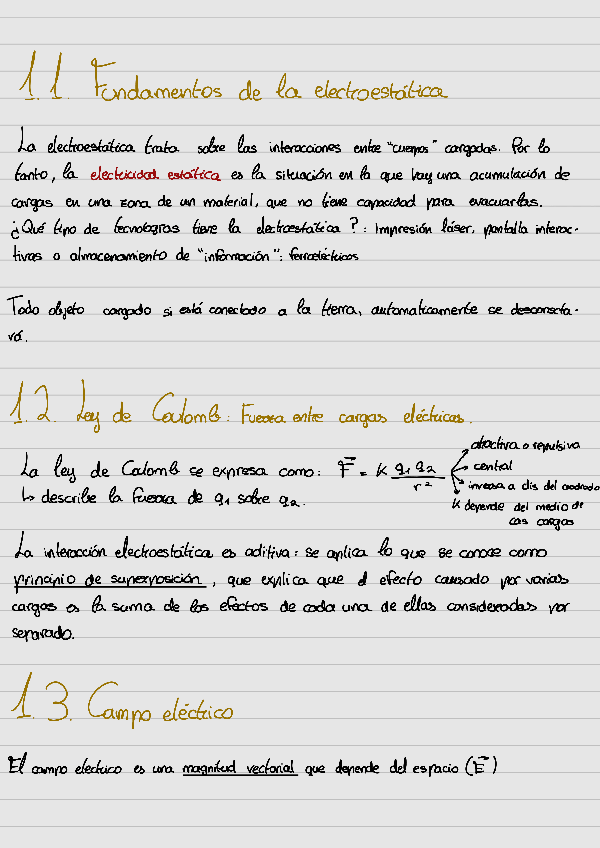 1.1. Fundamentos de la electroestática
La electroestática trata sobre las interacciones entre "cuerpos" cargados. Por lo
tanto, la electricidad estática es la situación en la que hay una acumulación de
cargas en una zona de un material, que no tiene capacidad para evacuarlas.
¿Qué tipo de tecnologías tiene la electroestática?: Impresión láser, pantalla interac-
tivas o almacenamiento de "información": ferroeléctricos
Todo objeto cargado si está conectado a la tierra, automaticamente se desconecta-
rá.
1.2. Ley de Coulomb: Fuerza entre cargas eléctricas.
La ley de Coulomb se expresa como: F⃗ = K q1 q2 / r²
atractiva o repulsiva
central
inversa a dis del cuadrado
K depende del medio de
las cargas
↳ describe la fuerza de q1 sobre q2.
La interacción electroestática es aditiva: se aplica lo que se conoce como
principio de superposición, que explica que el efecto causado por varias
cargas es la suma de los efectos de cada una de ellas consideradas por
separado.
1.3. Campo eléctrico
El campo electrico es una magnitud vectorial que depende del espacio (E⃗)